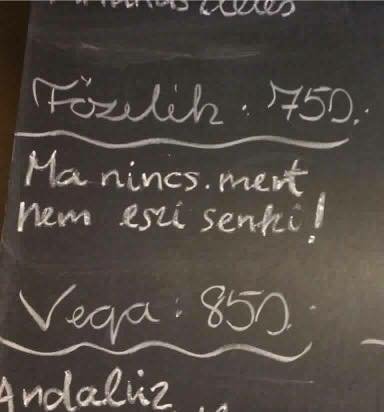 Főzelék: 750.
Ma nincs. mert
nem eszi senki!
Vega: 850.
Andalúz